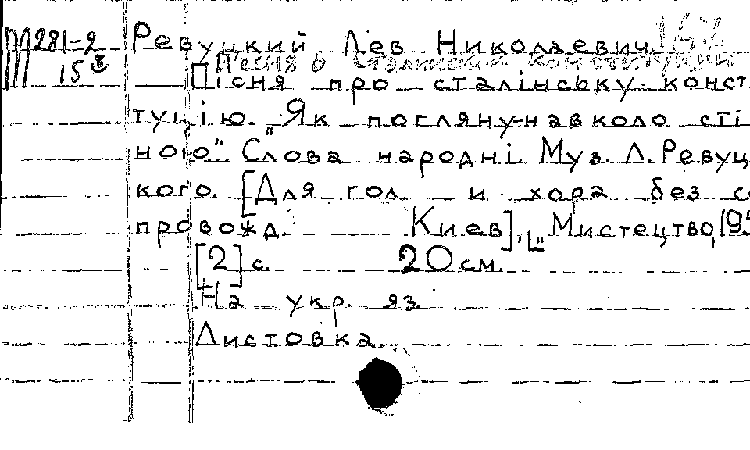 М281-2 Ревуцкий Лев Николаевич. 162
15 Песня о Сталинской конституции
Пісня про сталінську конст
туцію. "Як погляну навколо сті
ного". Слова народні. Муз. Л. Ревуц
кого. [Для гол и хора без со
провожд. Киев], "Мистецтво, 195
[2] с. 20 см.
На укр. яз
Листовка.